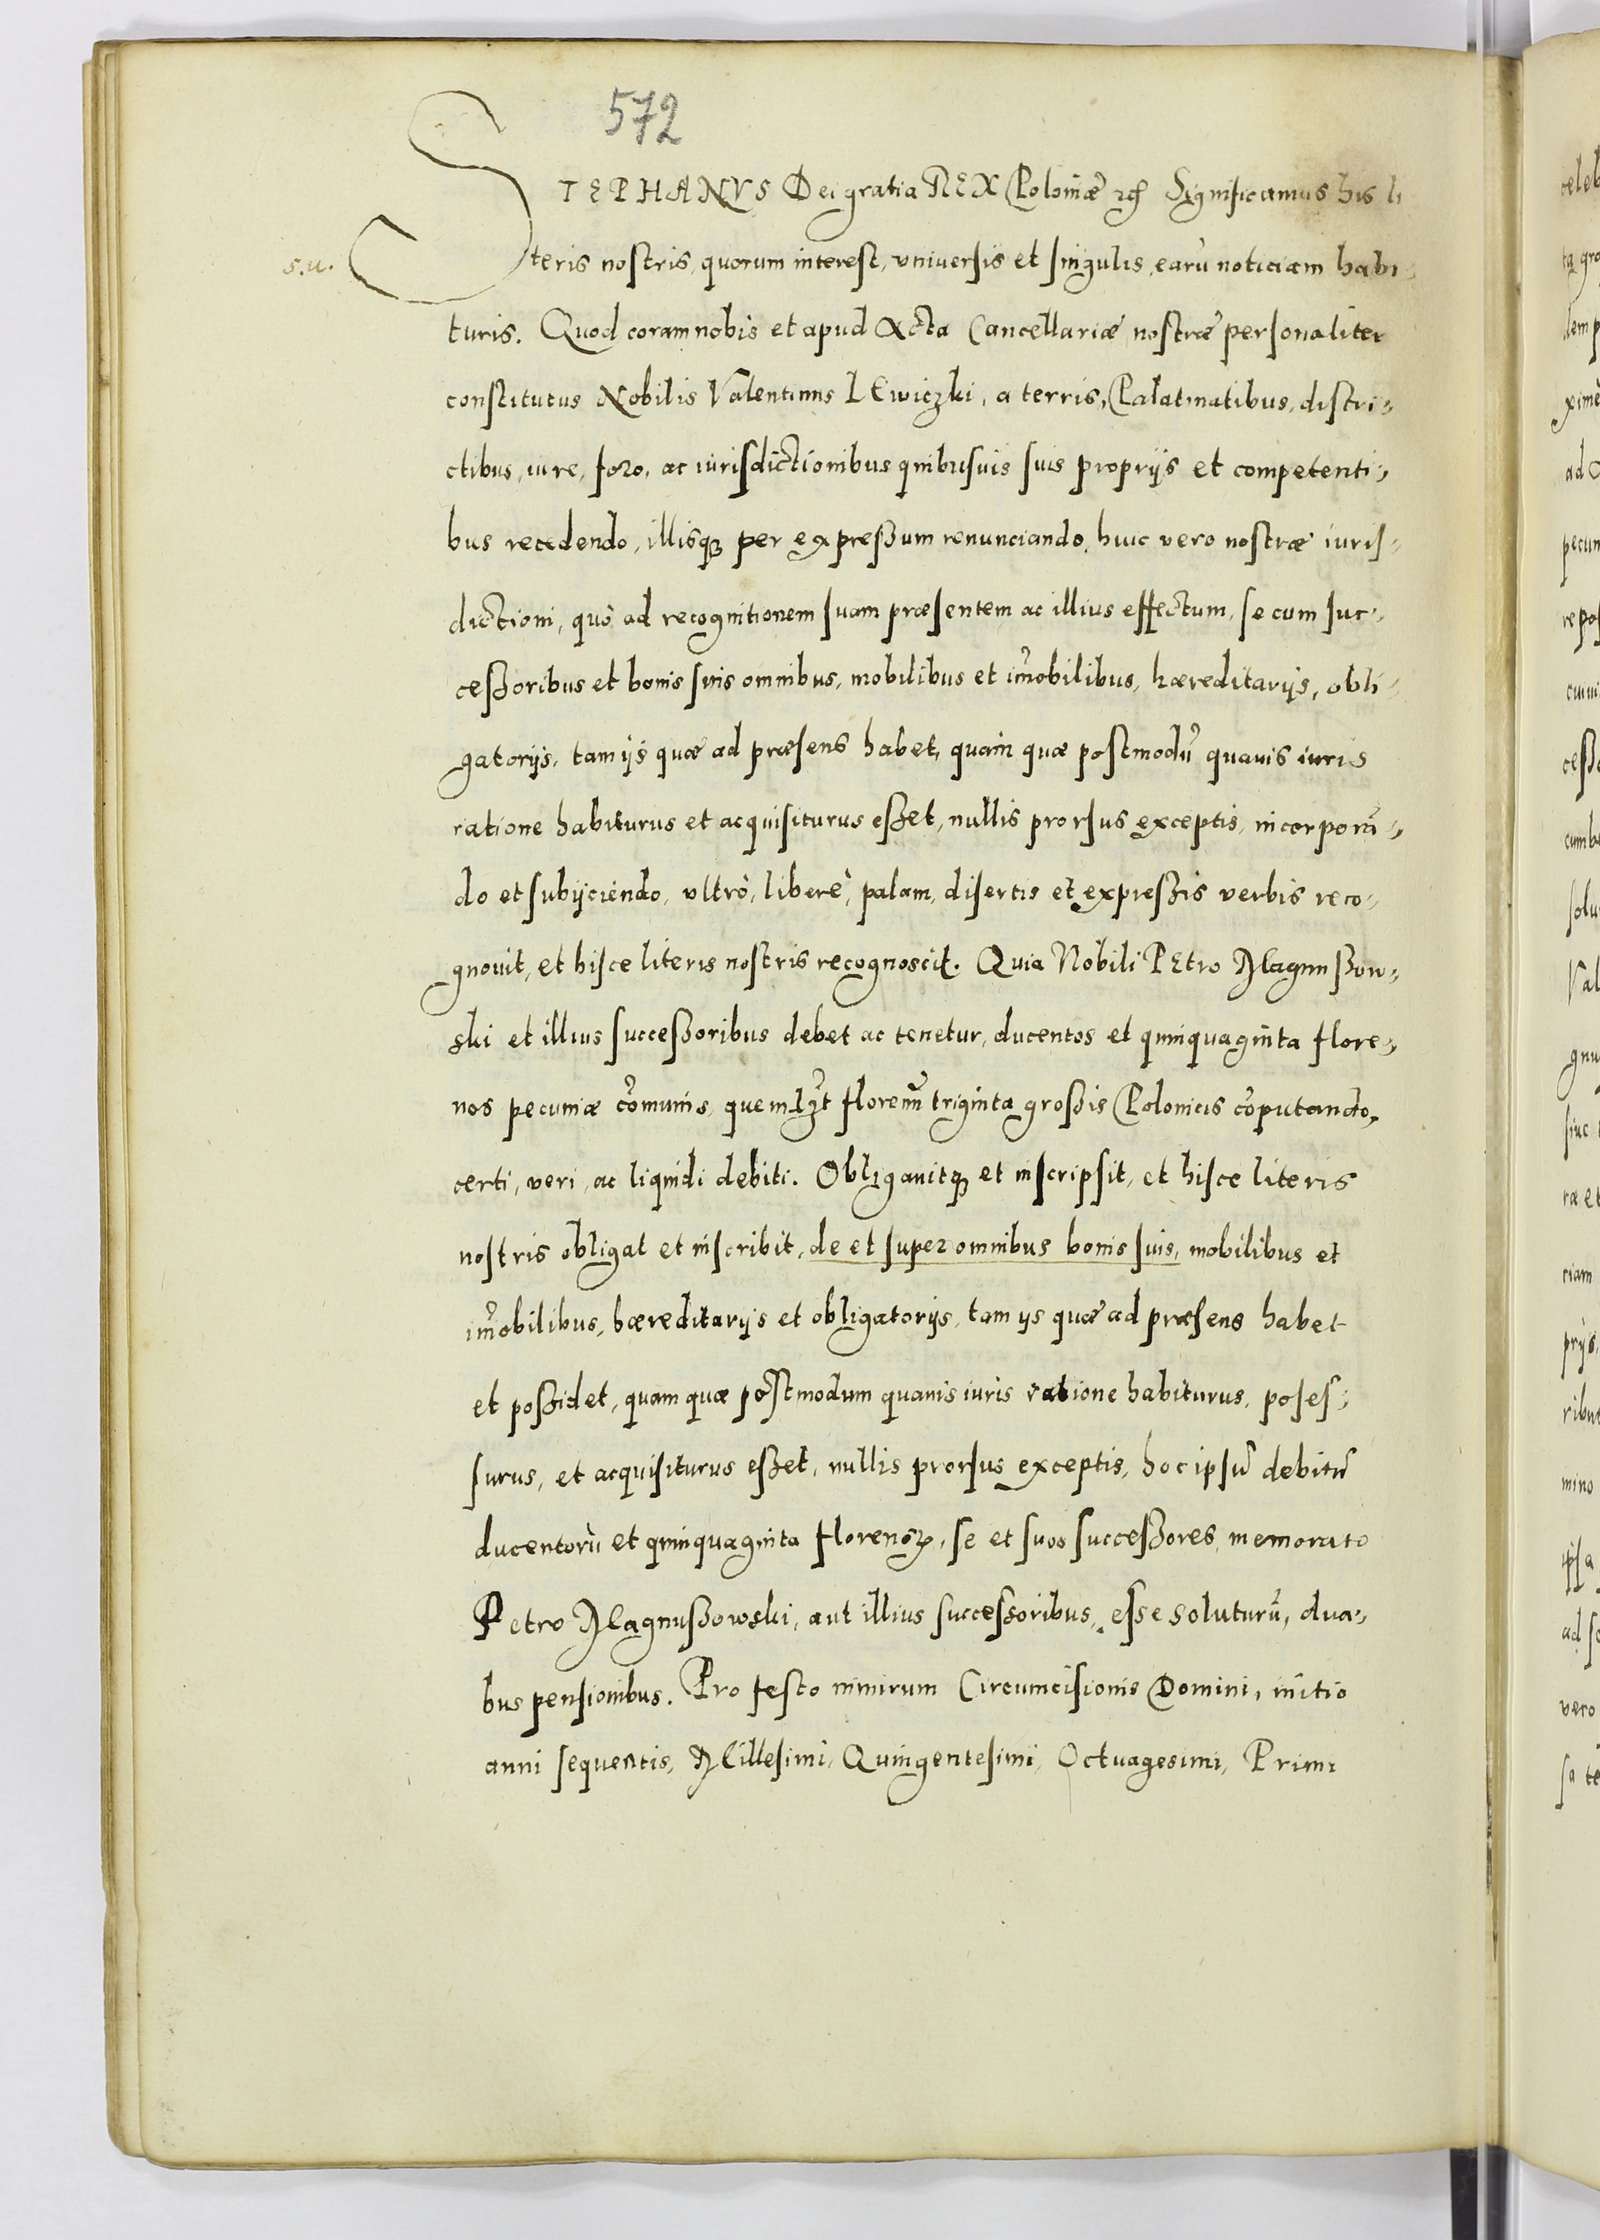 572
STEPHANVS Dei gratia REX Poloniæ etc̃ Significamus his li
s.u.
teris nostris, quorum interest, vniuersis et singulis, earũ noticiam habi-
turis. Quod coram nobis et apud Acta Cancellariæ nostræ personaliter
constitutus Nobilis Valentinus LEwiczki, a terris, Palatinatibus, distri-
ctibus, iure, foro, ac iurisdictionibus quibusuis suis proprijs et competenti-
bus recedendo, illisqꝫ per expreßum renunciando, huic vero nostræ iuris-
dictioni, quò ad recognitionem suam præsentem ac illius effectum, se cum suc-
ceßoribus et bonis suis omnibus, mobilibus et im̃obilibus, hæreditarijs, obli-
gatorijs, tam ijs quæ ad præsens habet, quam quæ postmodũ quauis iuris
ratione habiturus et acquisiturus eßet, nullis prorsus exceptis, incorporã-
do et subijciendo, vltrò, liberè, palam, disertis et expreßis verbis reco-
gnouit, et hisce literis nostris recognoscit. Quia Nobili PEtro Magnußow-
ski et illius succeßoribus debet ac tenetur, ducentos et quinquaginta flore-
nos pecuniæ cõmunis, quemlꝫt florenũ triginta großis Polonicis cõputando,
certi, veri, ac liquidi debiti. Obligauitqꝫ et inscripsit, et hisce literis
nostris obligat et inscribit, de et super omnibus bonis suis, mobilibus et
im̃obilibus, hæreditarijs et obligatorijs, tam ijs quæ ad præsens habet
et poßidet, quam quæ postmodum quauis iuris ratione habiturus, poses-
surus, et acquisiturus eßet, nullis prorsus exceptis, hoc ipsũ debitũ
ducentorũ et quinquaginta florenoꝝ, se et suos succeßores, memorato
Petro Magnußowski, aut illius succeßoribus, esse soluturũ, dua-
bus pensionibus. Pro festo nimirum Circumcisionis Domini, initio
anni sequentis, Millesimi, Quingentesimi, Octuagesimi, Primi